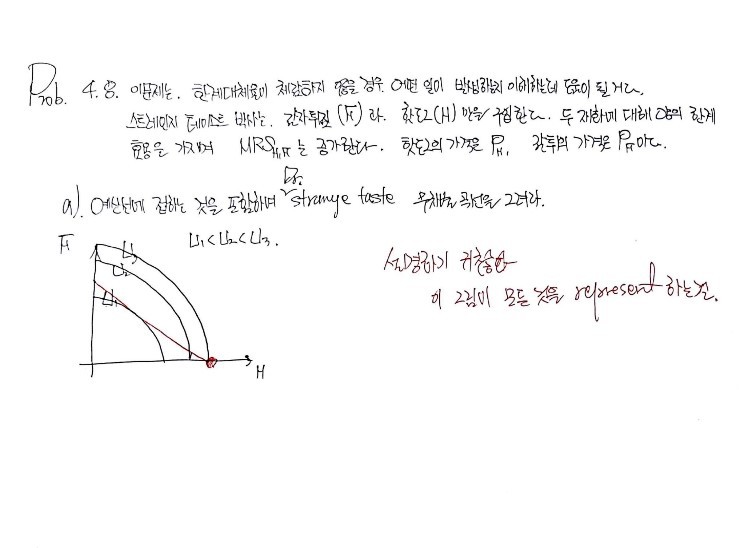 Prob. 4.8. 이문제는. 한계대체율이 체감하지 않을 경우 어떤 일이 발생하는지 이해하는데 도움이 될거다.
스트레인지 테이스트 박사는. 감자튀김 (F) 라. 핫도그(H) 만을 구입한다. 두 재화에 대해 양의 한계
효용을 가지며 MRS_H,F 는 증가한다. 핫도그의 가격은 P_H, 감튀의 가격은 P_F 이다.
Dr.
a). 예산선에 접하는 것을 포함하여 strange taste 무차별 곡선을 그려라.
F U₃ U₁<U₂<U₃.
U₂
U₁
H
설명하기 귀찮음
이 그림이 모든 것을 represent 하는걸.